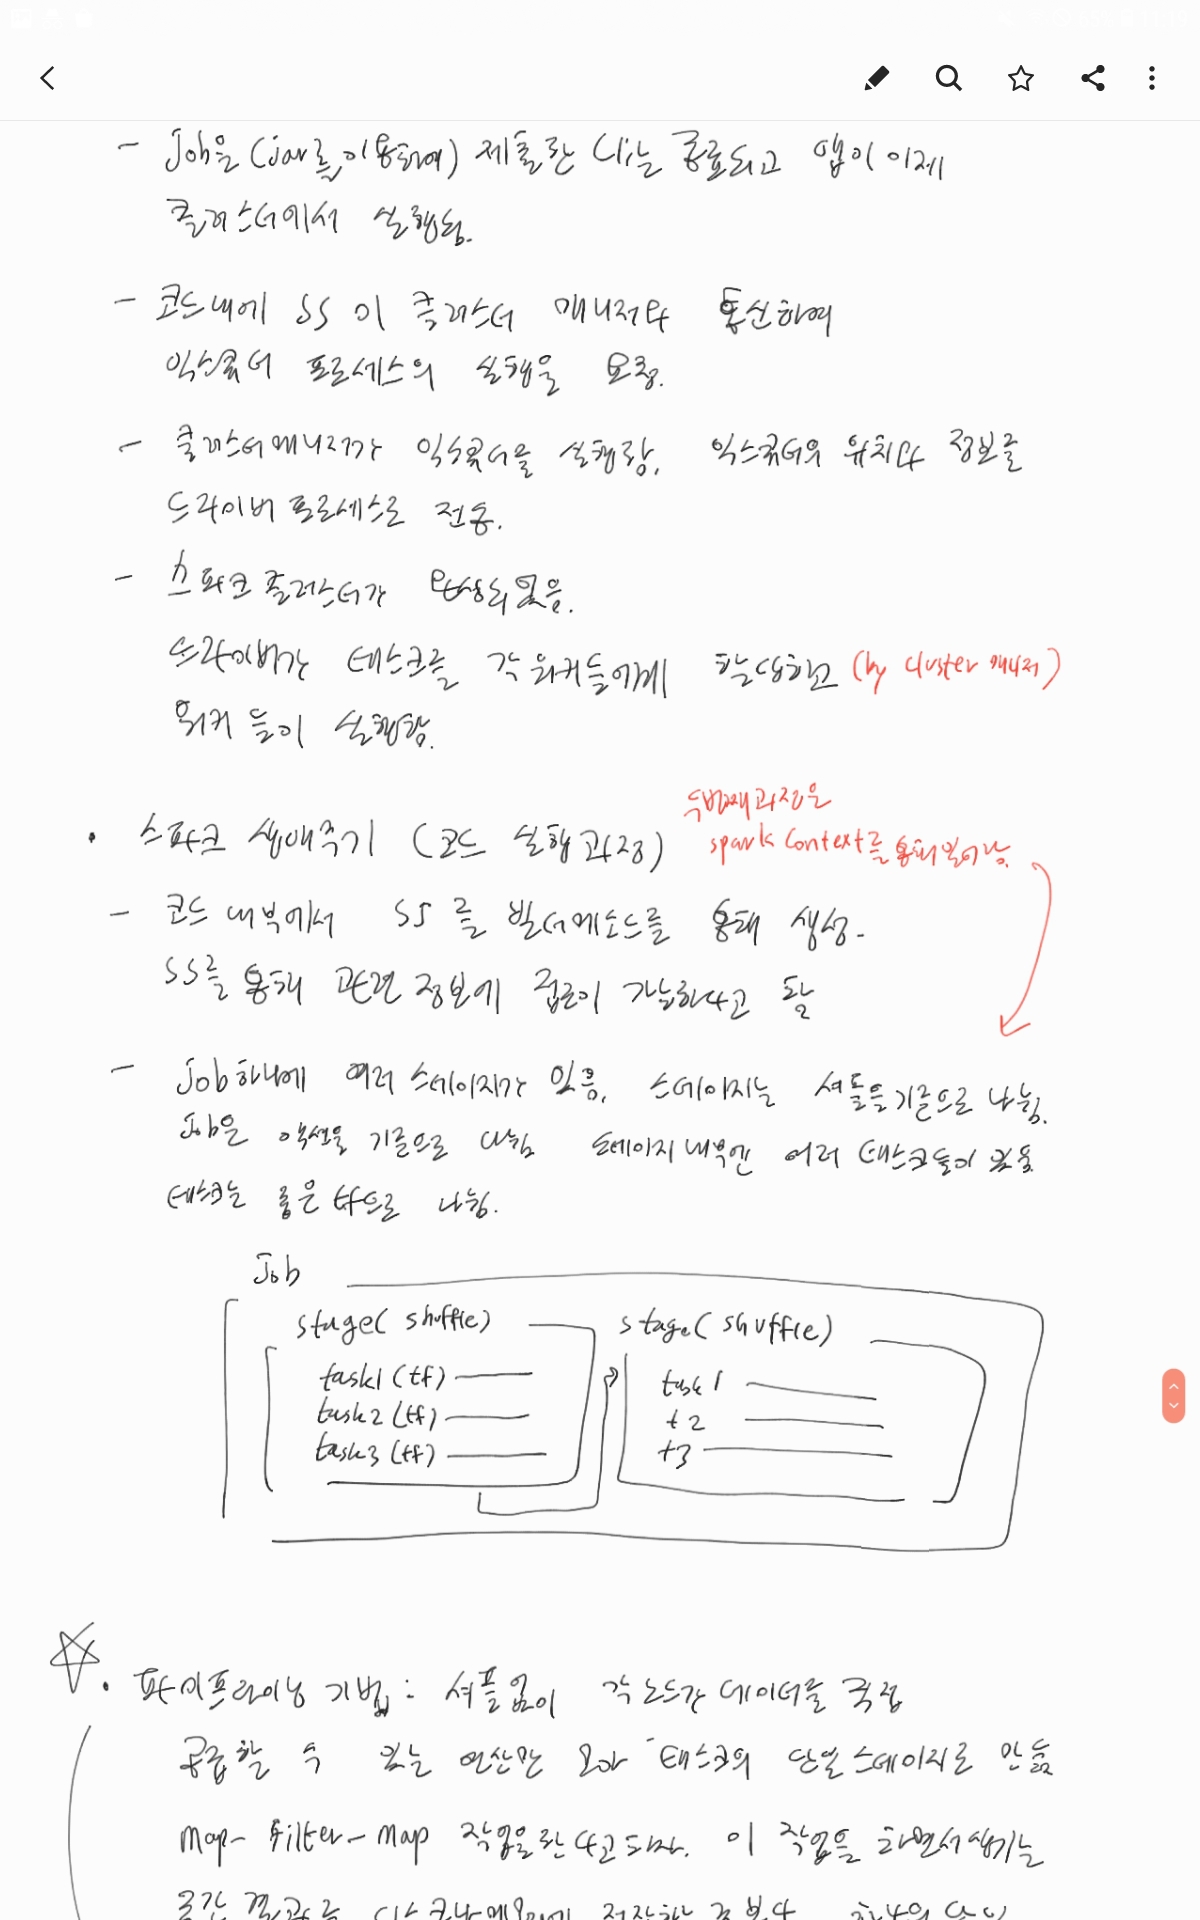 - Job을 (jar를 이용하여) 제출한 Cli는 종료되고 앱이 이제
클러스터에서 실행됨.
- 코드내에 SS 이 클러스터 매니저와 통신하여
익스큐터 프로세스의 실행을 요청.
- 클러스터매니저가 익스큐터를 실행함. 익스큐터의 위치와 정보를
드라이버 프로세스로 전송.
- 스파크 클러스터가 완성되었음.
드라이버가 태스크를 각 워커들에게 할당하고 (by cluster 매니저)
워커 들이 실행함.
두번째 과정은
spark context를 통해 일어남.
• 스파크 생애주기 (코드 실행 과정)
- 코드 내부에서 SS 를 빌더메소드를 통해 생성.
SS를 통해 관련 정보에 접근이 가능하다고 함
- Job하나에 여러 스테이지가 있음. 스테이지는 셔플을 기준으로 나뉨.
Job은 액션을 기준으로 나뉨 스테이지 내부엔 여러 태스크들이 있음
태스크는 좁은 tf으로 나뉨.
Job
stage( shuffle) stage( shuffle)
task1 (tf) task 1
task2 (tf) t2
task3 (tf) t3
• 파이프라이닝 기법 : 셔플없이 각 노드가 데이터를 직접
공급할 수 있는 연산만 모아 태스크의 단일 스테이지로 만듦
map- filter-map 작업을 한다고 하자. 이 작업을 하면서 생기는
중간 결과를 디스크나 메모리에 저장하는